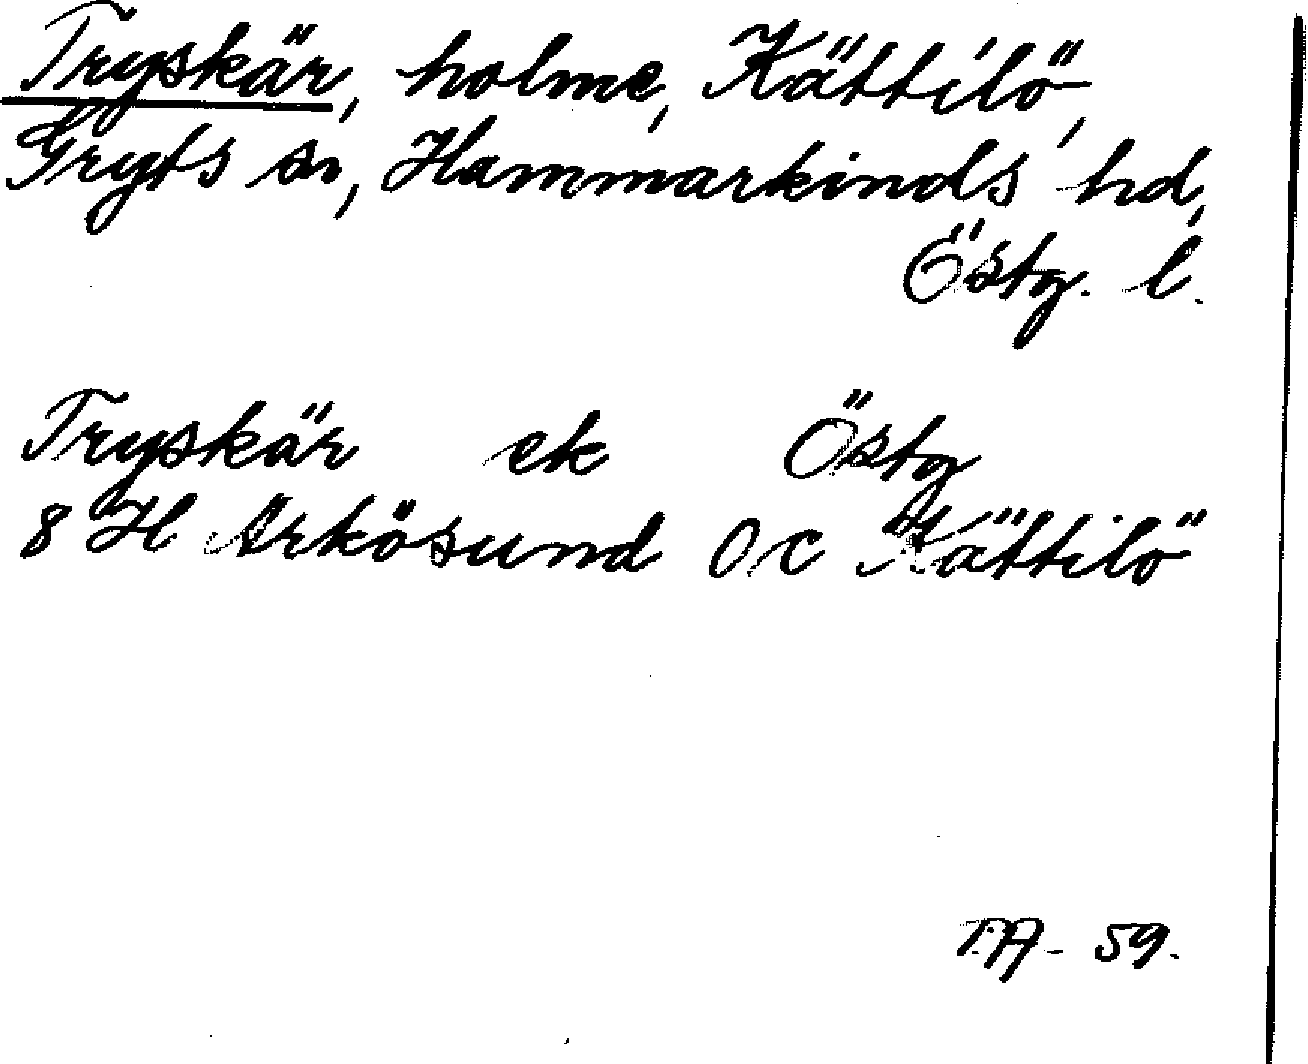 Tryskär, holme, Kättilö,
Gryts sn, Hammarkinds hd,
Östg. l.
Tryskär ek Östg
8 H Arkösund 0 c Kättilö
T.A- 59.